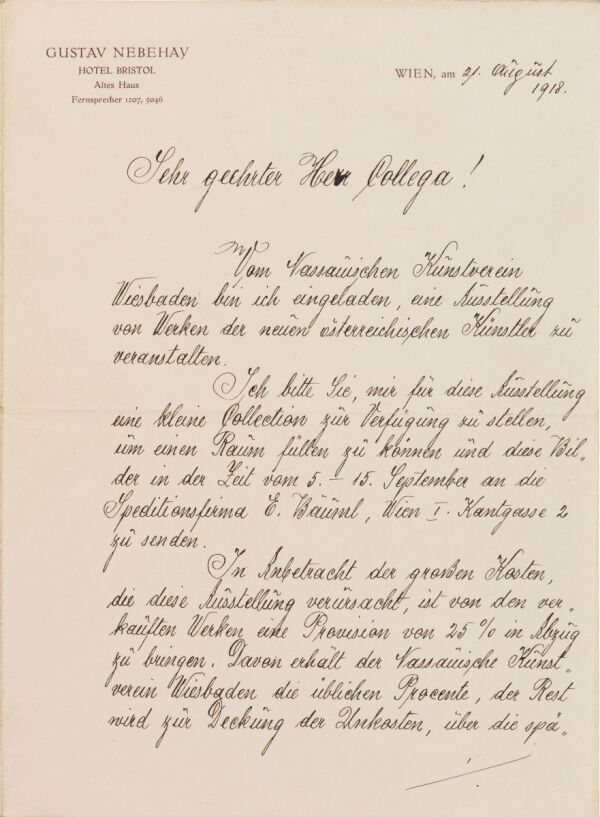 GUSTAV NEBEHAY
HOTEL BRISTOL
Altes Haus
Fernsprecher 1207, 5046
WIEN, am 21. August
1918.
Sehr geehrter Herr Collega!
Vom Nassauischen Kunstverein
Wiesbaden bin ich eingeladen, eine Ausstellung
von Werken der neuen österreichischen Künstler zu
veranstalten.
Ich bitte Sie, mir für diese Ausstellung
eine kleine Collection zur Verfügung zu stellen,
um einen Raum füllen zu können und diese Bil„
der in der Zeit vom 5. – 15. September an die
Speditionsfirma E. Bäuml, Wien I. Kantgasse 2
zu senden.
In Anbetracht der großen Kosten,
die diese Ausstellung verursacht, ist von den ver„
kauften Werken eine Provision von 25 % in Abzug
zu bringen. Davon erhält der Nassauische Kunst„
verein Wiesbaden die üblichen Procente, der Rest
wird zur Deckung der Unkosten, über die spä„